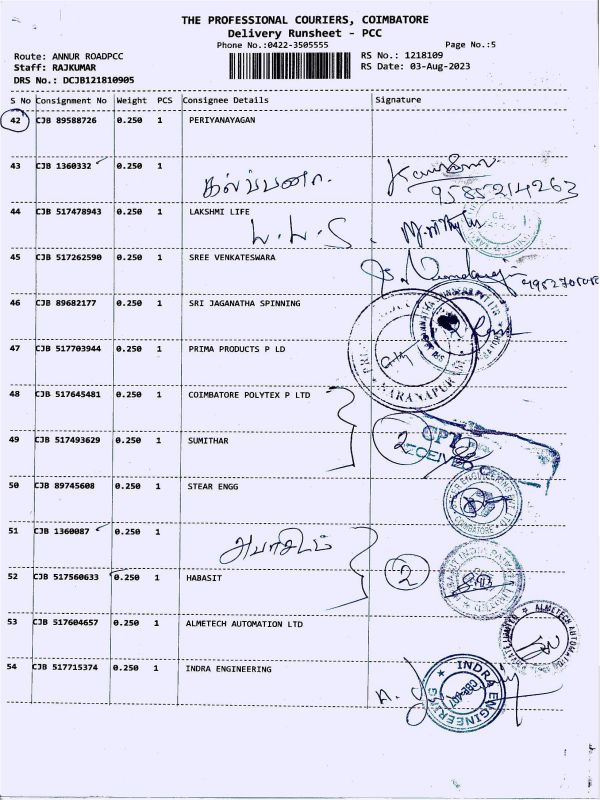 THE PROFESSIONAL COURIERS, COIMBATORE
Delivery Runsheet - PCC
Phone No.:0422-3505555
Page No.:5
Route: ANNUR ROADPCC
RS No.: 1218109
Staff: RAJKUMAR
RS Date: 03-Aug-2023
DRS No.: DCJB121810905
S No Consignment No Weight PCS Consignee Details Signature
42 CJB 89588726 0.250 1 PERIYANAYAGAN
43 CJB 1360332 0.250 1
கல்பனா.
9585214263
44 CJB 517478943 0.250 1 LAKSHMI LIFE
L.L.S.
45 CJB 517262590 0.250 1 SREE VENKATESWARA
46 CJB 89682177 0.250 1 SRI JAGANATHA SPINNING
47 CJB 517703944 0.250 1 PRIMA PRODUCTS P LD
48 CJB 517645481 0.250 1 COIMBATORE POLYTEX P LTD
2
49 CJB 517493629 0.250 1 SUMITHAR
50 CJB 89745608 0.250 1 STEAR ENGG
COIMBATORE
51 CJB 1360087 0.250 1
2
52 CJB 517560633 0.250 1 HABASIT
53 CJB 517604657 0.250 1 ALMETECH AUTOMATION LTD
ALMETECH
54 CJB 517715374 0.250 1 INDRA ENGINEERING
INDRA ENGINEERING